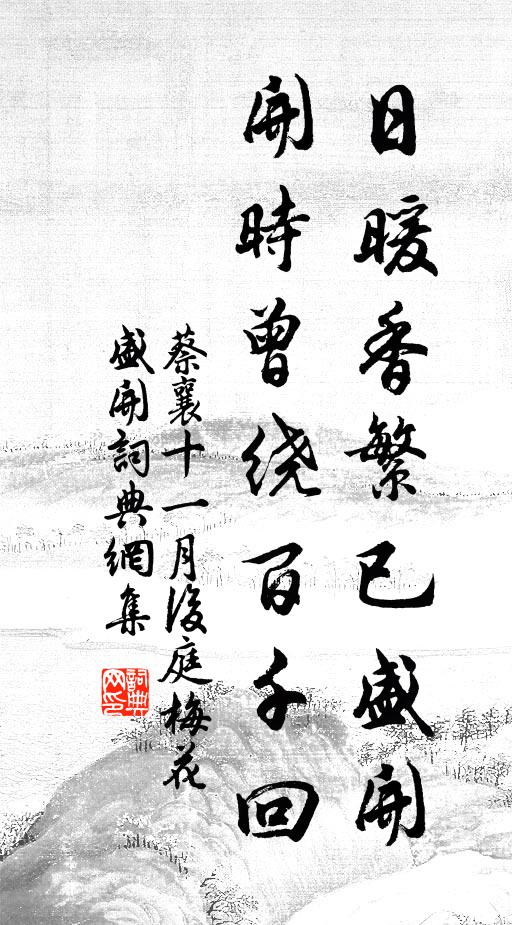 日暖香繁已盛開
開時曾繞百千回
蔡襄十一月後庭梅花
盛開詞典網集
詞典網印